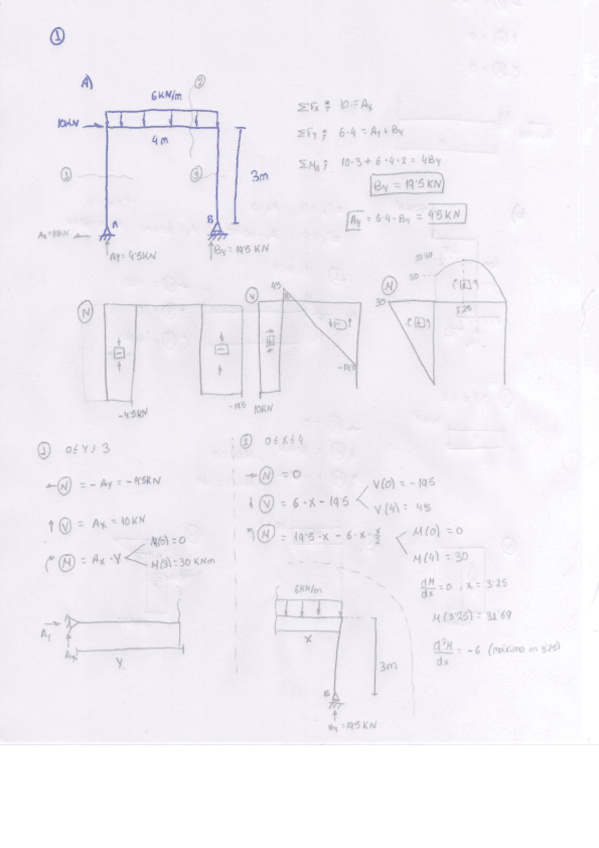 1
A)
2
6KN/m
10KN
4m
1
3
3m
A
B
Ay = 4'5KN
By = 19'5 KN
ΣFx ; 10 = Ax
ΣFy ; 6·4 = Ay + By
ΣMA ; 10·3 + 6·4·2 = 4By
By = 19'5 KN
Ay = 6·4 - By = 4'5 KN
N
-4'5KN
-19'5
V
4'5
-19'5
10KN
M
30
30
3'25
1 0 ≤ Y ≤ 3
N = - Ay = -4'5KN
V = Ax = 10 KN
M = Ax · Y
M(0) = 0
M(3) = 30 KNm
Y
2 0 ≤ X ≤ 4
N = 0
V = 6 · X - 19'5
V(0) = -19'5
V(4) = 4'5
M = 19'5 · X - 6 · X · X/2
M(0) = 0
M(4) = 30
dM/dx = 0 ; X = 3'25
M(3'25) = 31'69
d²M/dx = -6 (máximo en 3'25)
6KN/m
X
3m
B
By = 19'5 KN